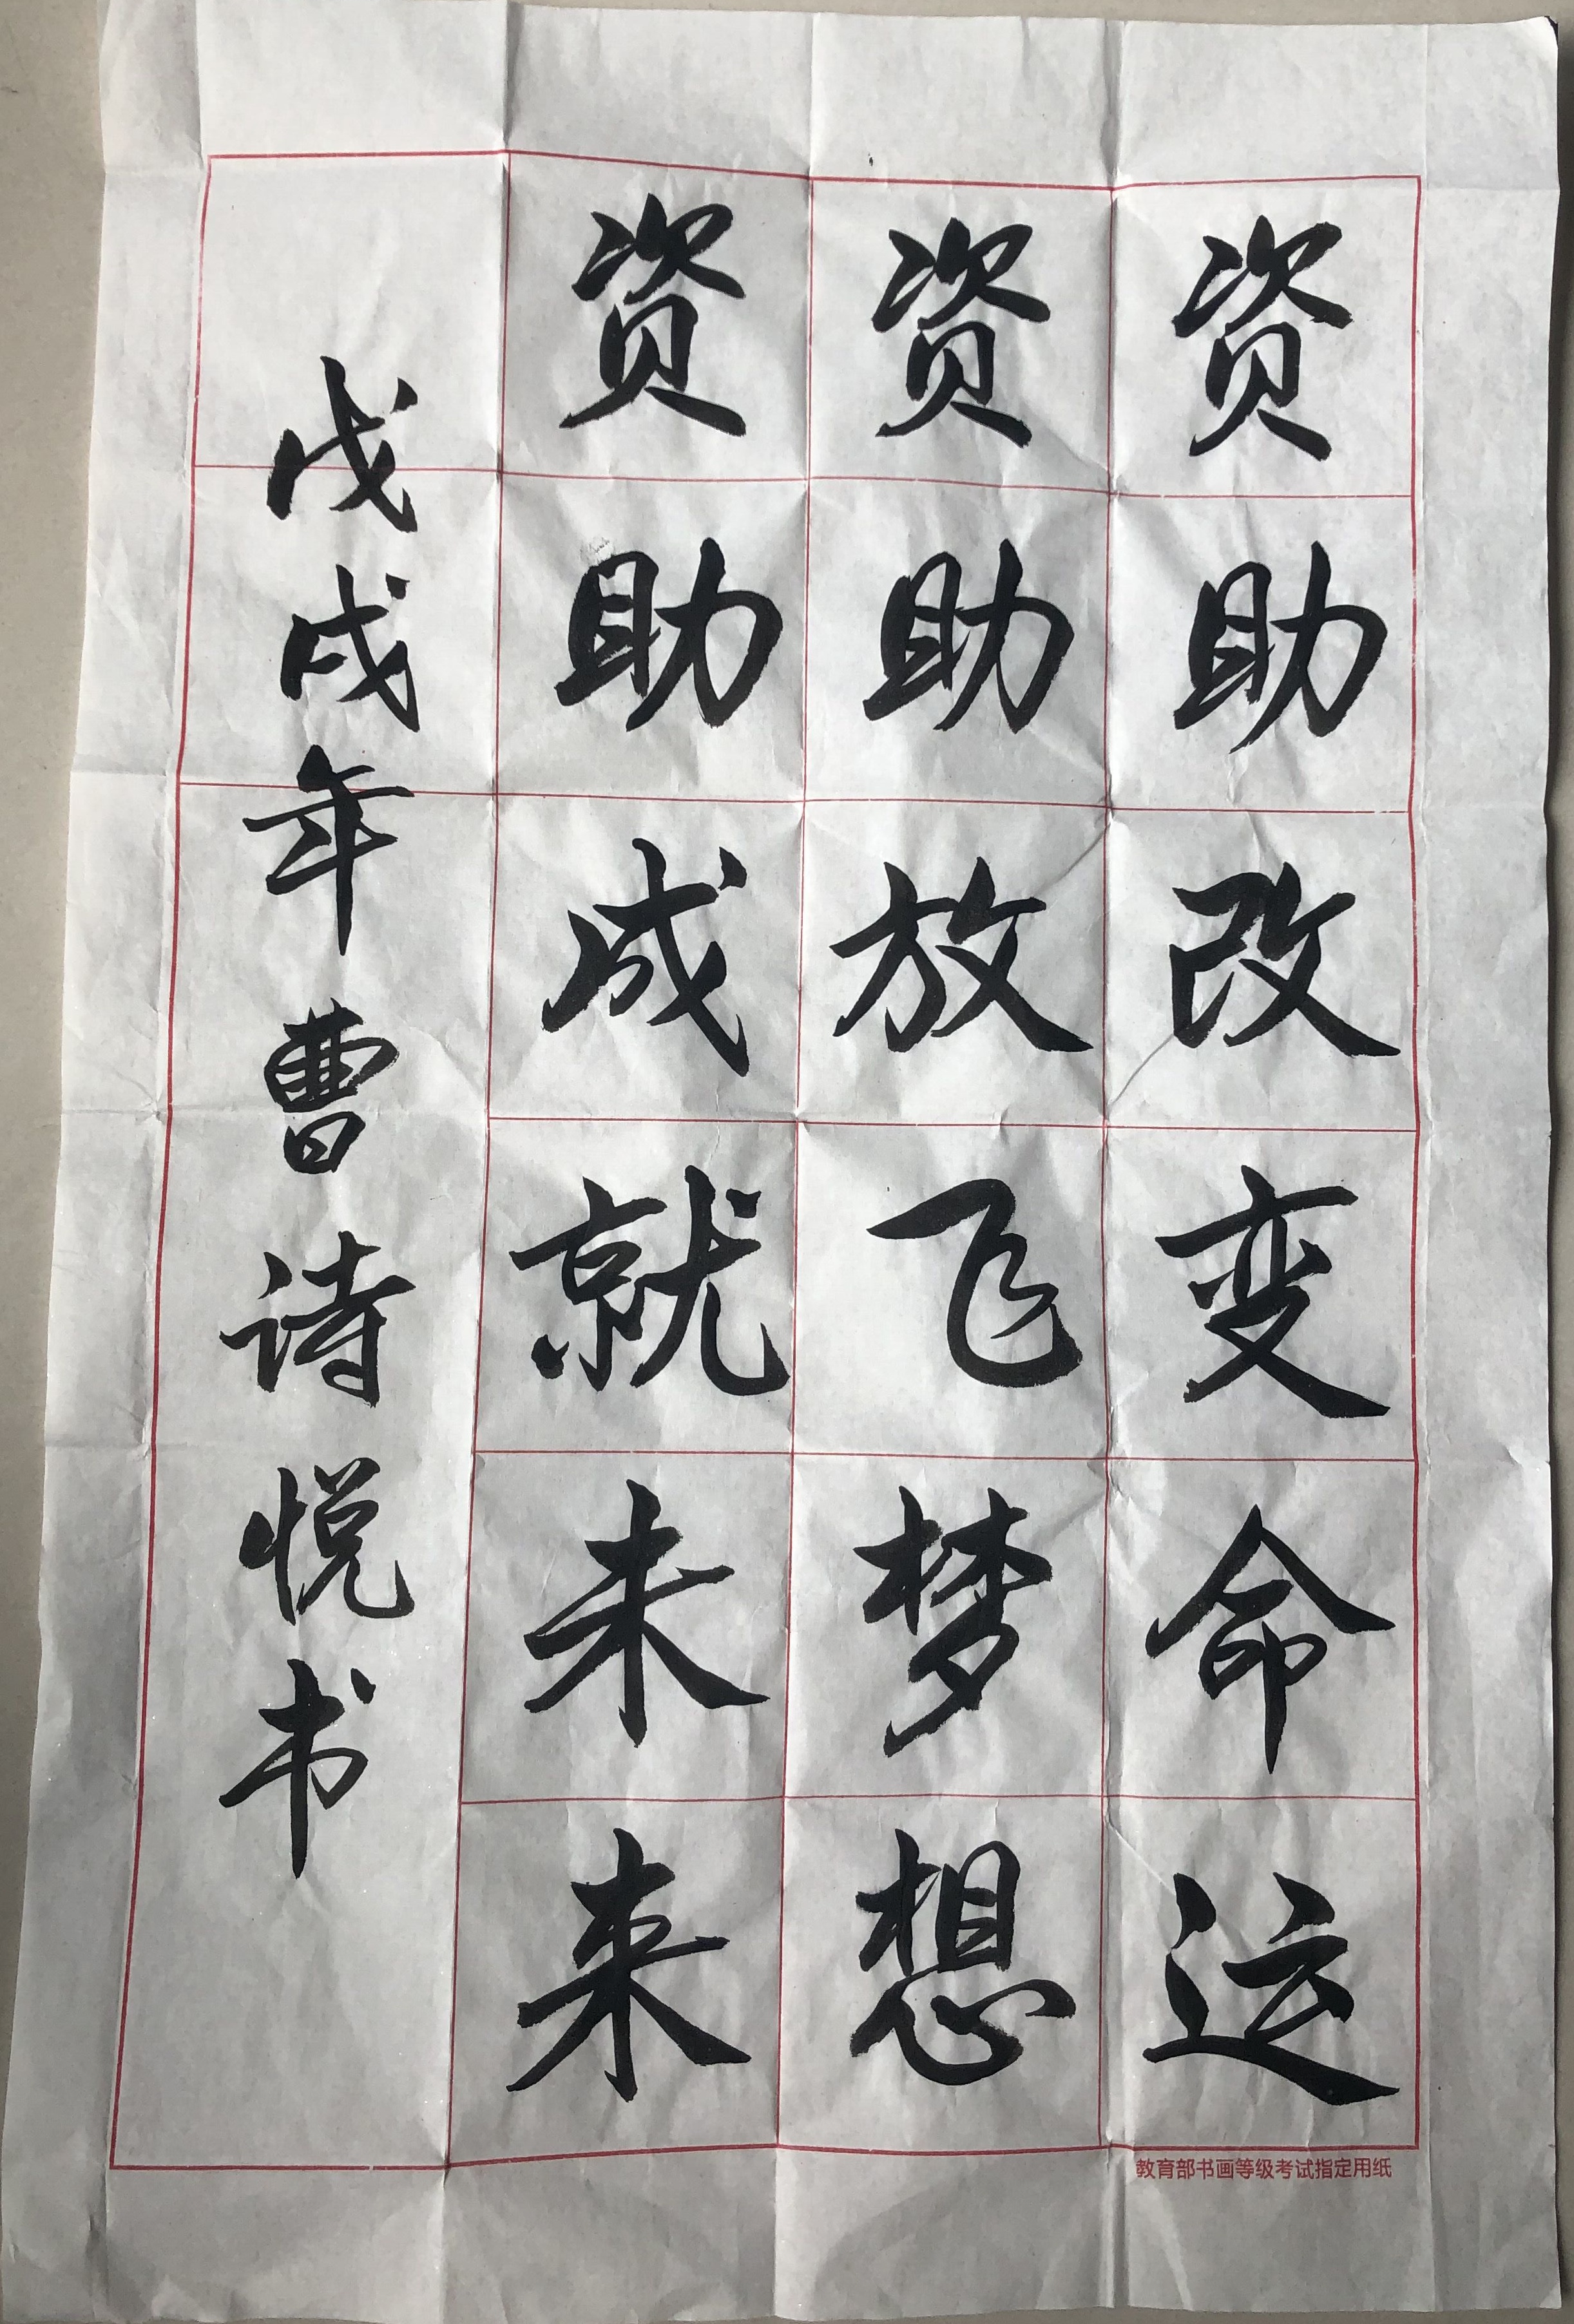 资助改变命运
资助放飞梦想
资助成就未来
戊戌年曹诗悦书
教育部书画等级考试指定用纸